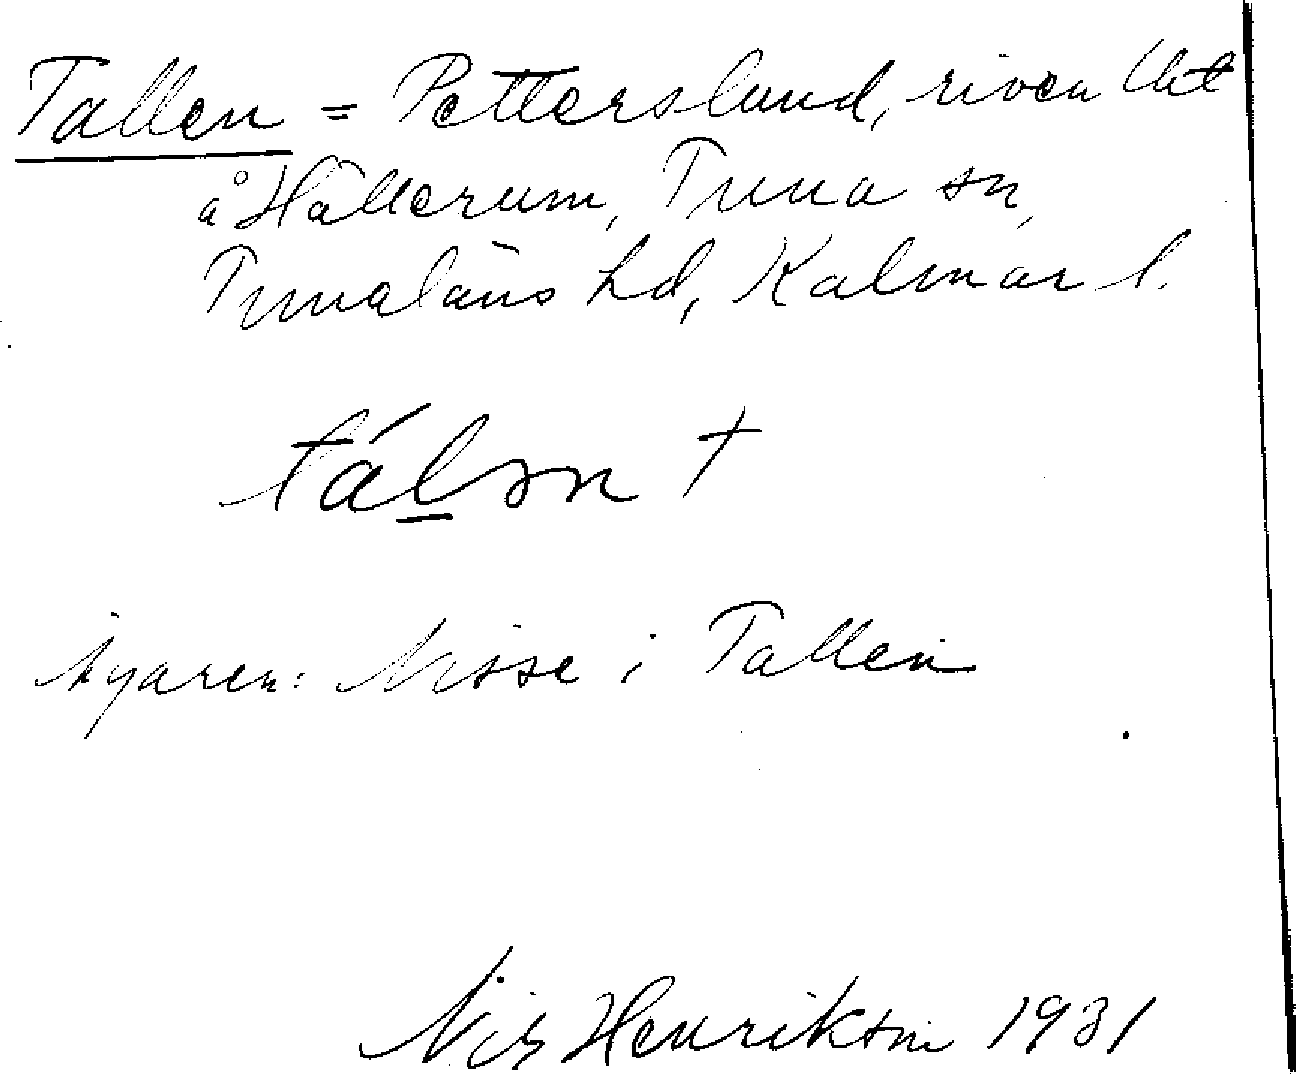 Tallen = Petterslund, riven lht
å Hällerum, Tuna sn,
Tunaläns hd, Kalmar l.
tálən †
byaren: Nisse i Tallen
Nils Henrikson 1931